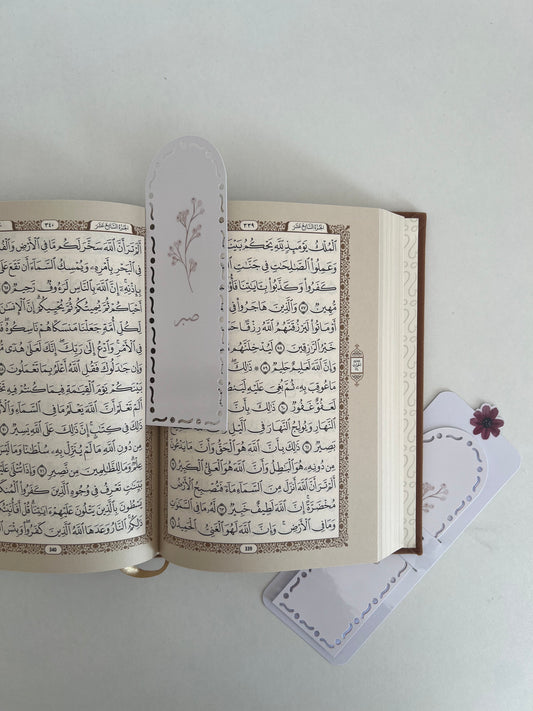 الجزء السابع عشر
٣٣٩
ٱلْمُلْكُ يَوْمَئِذٍ لِّلَّهِ يَحْكُمُ
وَعَمِلُوا۟ ٱلصَّـٰلِحَـٰتِ فِى جَنَّـٰتِ
كَفَرُوا۟ وَكَذَّبُوا۟ بِـَٔايَـٰتِنَا
مُّهِينٌ ٥٧ وَٱلَّذِينَ هَاجَرُوا۟ فِى
أَوْ مَاتُوا۟ لَيَرْزُقَنَّهُمُ ٱللَّهُ رِزْقًا
خَيْرُ ٱلرَّٰزِقِينَ ٥٨ لَيُدْخِلَنَّهُم
وَإِنَّ ٱللَّهَ لَعَلِيمٌ حَلِيمٌ ٥٩ ذَٰلِكَ
مَا عُوقِبَ بِهِۦ ثُمَّ بُغِىَ عَلَيْهِ
لَعَفُوٌّ غَفُورٌ ٦٠ ذَٰلِكَ بِأَنَّ
ٱلنَّهَارِ وَيُولِجُ ٱلنَّهَارَ
بَصِيرٌ ٦١ ذَٰلِكَ بِأَنَّ ٱللَّهَ هُوَ ٱلْحَقُّ وَأَنَّ مَا يَدْعُونَ
مِن دُونِهِۦ هُوَ ٱلْبَـٰطِلُ وَأَنَّ ٱللَّهَ هُوَ ٱلْعَلِىُّ ٱلْكَبِيرُ ٦٢
أَلَمْ تَرَ أَنَّ ٱللَّهَ أَنزَلَ مِنَ ٱلسَّمَآءِ مَآءً فَتُصْبِحُ ٱلْأَرْضُ
مُخْضَرَّةً إِنَّ ٱللَّهَ لَطِيفٌ خَبِيرٌ ٦٣ لَّهُۥ مَا فِى ٱلسَّمَـٰوَٰتِ
وَمَا فِى ٱلْأَرْضِ وَإِنَّ ٱللَّهَ لَهُوَ ٱلْغَنِىُّ ٱلْحَمِيدُ ٦٤
339
صبر
الجزء السابع عشر
٣٤٠
أَلَمْ تَرَ أَنَّ ٱللَّهَ سَخَّرَ لَكُم مَّا فِى ٱلْأَرْضِ وَٱلْفُلْكَ
فِى ٱلْبَحْرِ بِأَمْرِهِۦ وَيُمْسِكُ ٱلسَّمَآءَ أَن تَقَعَ
بِإِذْنِهِۦٓ إِنَّ ٱللَّهَ بِٱلنَّاسِ لَرَءُوفٌ رَّحِيمٌ ٦٥
أَحْيَاكُمْ ثُمَّ يُمِيتُكُمْ ثُمَّ يُحْيِيكُمْ إِنَّ ٱلْإِنسَـٰنَ
لِّكُلِّ أُمَّةٍ جَعَلْنَا مَنسَكًا هُمْ نَاسِكُوهُ
فِى ٱلْأَمْرِ وَٱدْعُ إِلَىٰ رَبِّكَ إِنَّكَ لَعَلَىٰ هُدًى
وَإِن جَـٰدَلُوكَ فَقُلِ ٱللَّهُ أَعْلَمُ بِمَا تَعْمَلُونَ
بَيْنَكُمْ يَوْمَ ٱلْقِيَـٰمَةِ فِيمَا كُنتُمْ فِيهِ
أَلَمْ تَعْلَمْ أَنَّ ٱللَّهَ يَعْلَمُ مَا فِى ٱلسَّمَآءِ
ذَٰلِكَ فِى كِتَـٰبٍ إِنَّ ذَٰلِكَ عَلَى ٱللَّهِ
مِن دُونِ ٱللَّهِ مَا لَمْ يُنَزِّلْ بِهِۦ سُلْطَـٰنًا وَمَا
عِلْمٌ وَمَا لِلظَّـٰلِمِينَ مِن نَّصِيرٍ ٧١ وَإِذَا تُتْلَىٰ
بَيِّنَـٰتٍ تَعْرِفُ فِى وُجُوهِ ٱلَّذِينَ كَفَرُوا۟
يَسْطُونَ بِٱلَّذِينَ يَتْلُونَ عَلَيْهِمْ ءَايَـٰتِنَا قُلْ
ذَٰلِكُمُ ٱلنَّارُ وَعَدَهَا ٱللَّهُ ٱلَّذِينَ كَفَرُوا۟ وَبِئْسَ
340